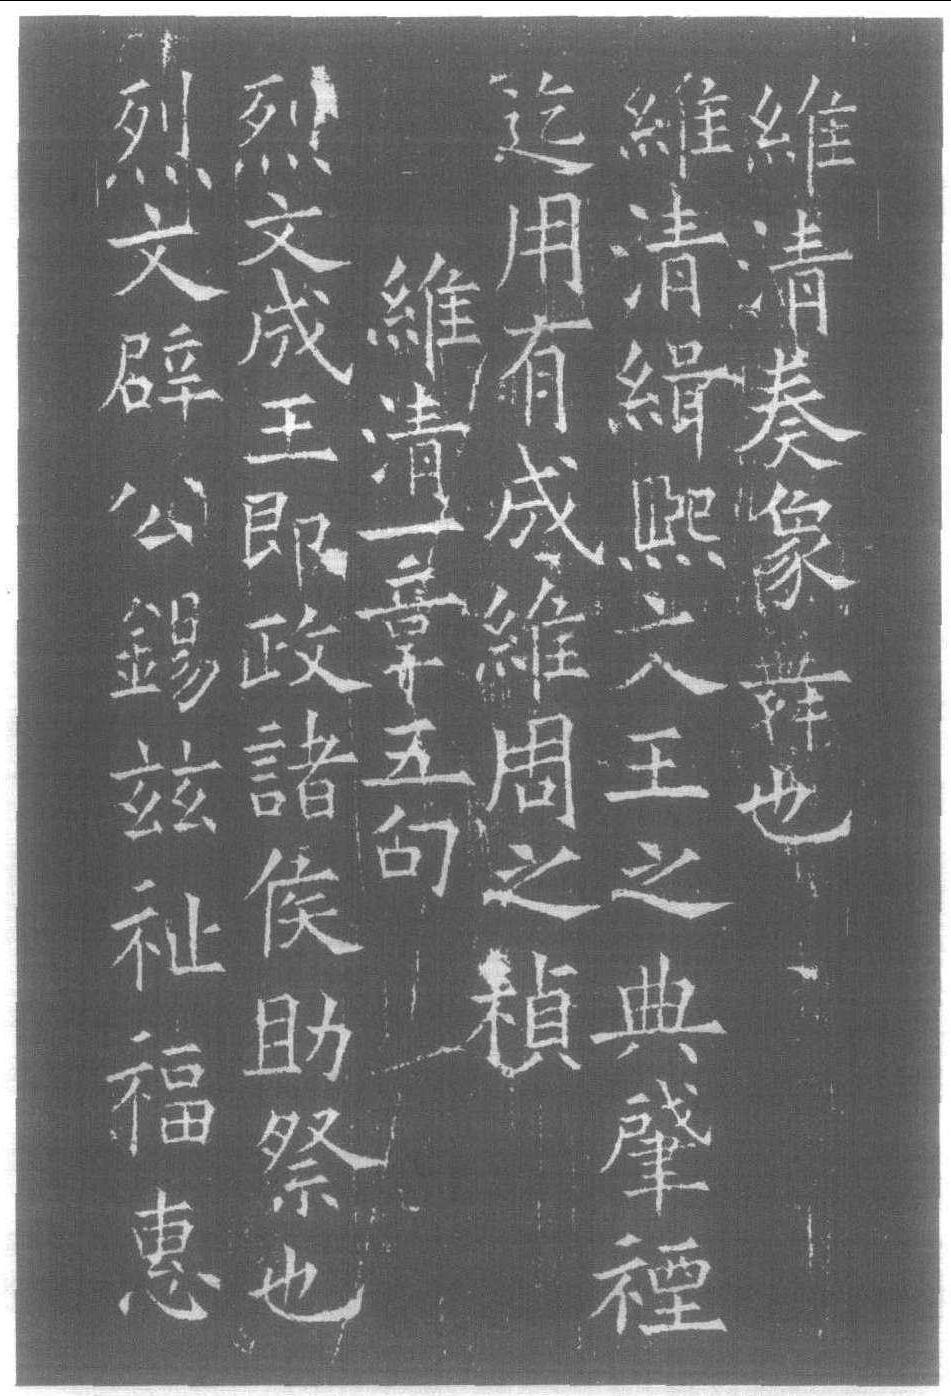 維清奏象舞也
維清緝熙文王之典肇禋
迄用有成維周之禎
維清一章五句
烈文成王即政諸侯助祭也
烈文辟公錫茲祉福惠